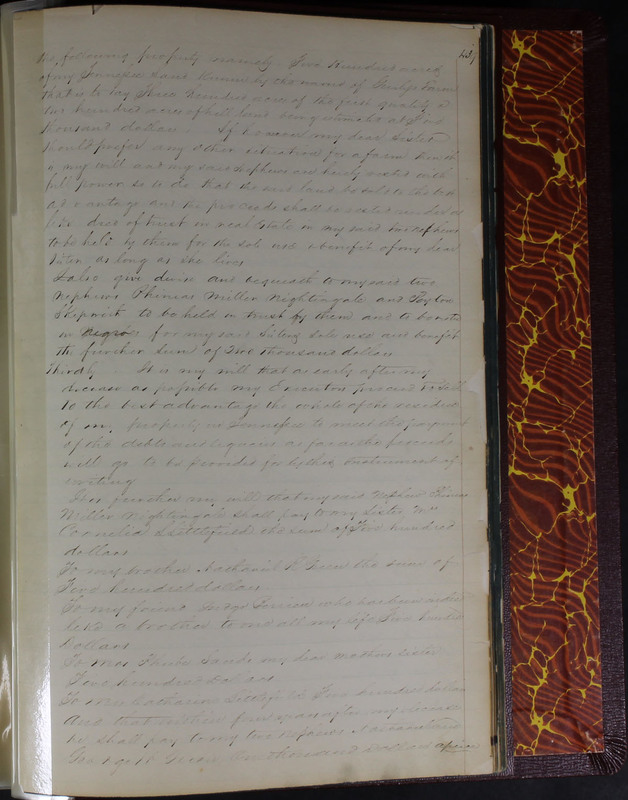 the following property namely Five Hundred acres
of my Tennessee Land known by the name of
that is to say Three Hundred acres of the first quality &
two hundred acres of hill land being estimated at
thousand dollars. If however my dear Sister
should prefer any other situation for a farm then it
is my will and my said nephews are hereby vested with
full power so to do that the said land be sold to the best
advantage and the proceeds shall be vested under a
like deed of trust in real Estate in my said two nephews
to be held by them for the sole use & benefit of my dear
Sister as long as she lives
I also give devise and bequeath to my said two
Nephews Phineas Miller Nightingale and
Skipwith to be held in trust by them and to be vested
in negroes for my said Sisters sole use and benefit
the further sum of Two thousand dollars
Thirdly It is my will that as early after my
decease as possible my Executors proceed to sell
to the best advantage the whole of the residue
of my property in Tennessee to meet the payment
of the debts and legacies as far as the proceeds
will go to be provided for by this instrument of
writing
It is further my will that my said Nephew Phineas
Miller Nightingale shall pay to my Sister Mrs
Cornelia Littlefield the sum of Five hundred
dollars
To my brother Nathaniel R Green the sum of
Five hundred dollars
To my friend who has been
like a brother to me all my life Five hundred
Dollars
To Mrs Sands my dear mothers sister
Five hundred Dollars
To Miss Catharine Littlefield Five hundred dollars
And that within four years after my decease
he shall pay to my two nephews Nathaniel
George Green thousand dollars apiece